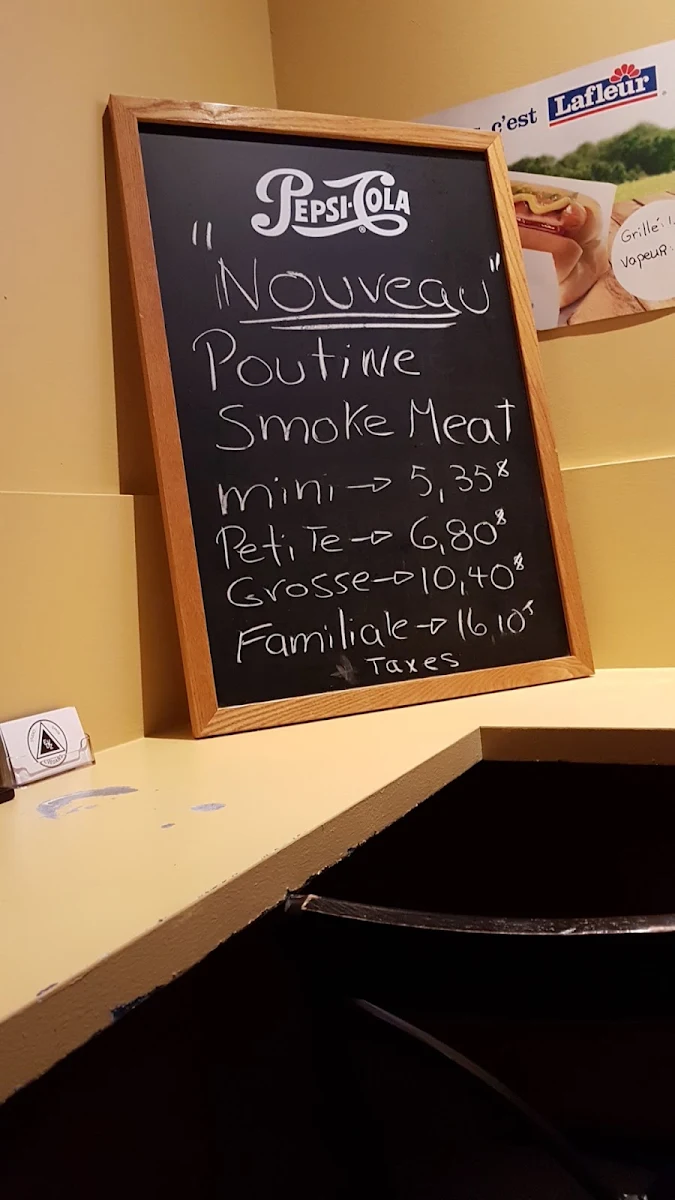 PEPSI·COLA
"Nouveau"
Poutine
Smoke Meat
mini → 5,35$
Petite → 6,80$
Grosse → 10,40$
Familiale → 16,10$
Taxes
c'est Lafleur
Grillé:
Vapeur: